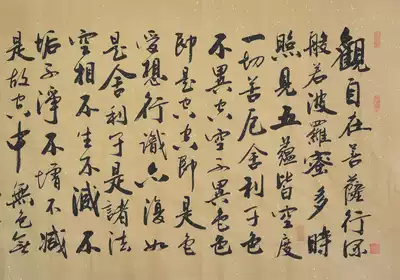 觀自在菩薩行深
般若波羅蜜多時
照見五蘊皆空度
一切苦厄舍利子色
不異空空不異色色
即是空空即是色
受想行識亦復如
是舍利子是諸法
空相不生不滅不
垢不淨不增不減
是故空中無色無